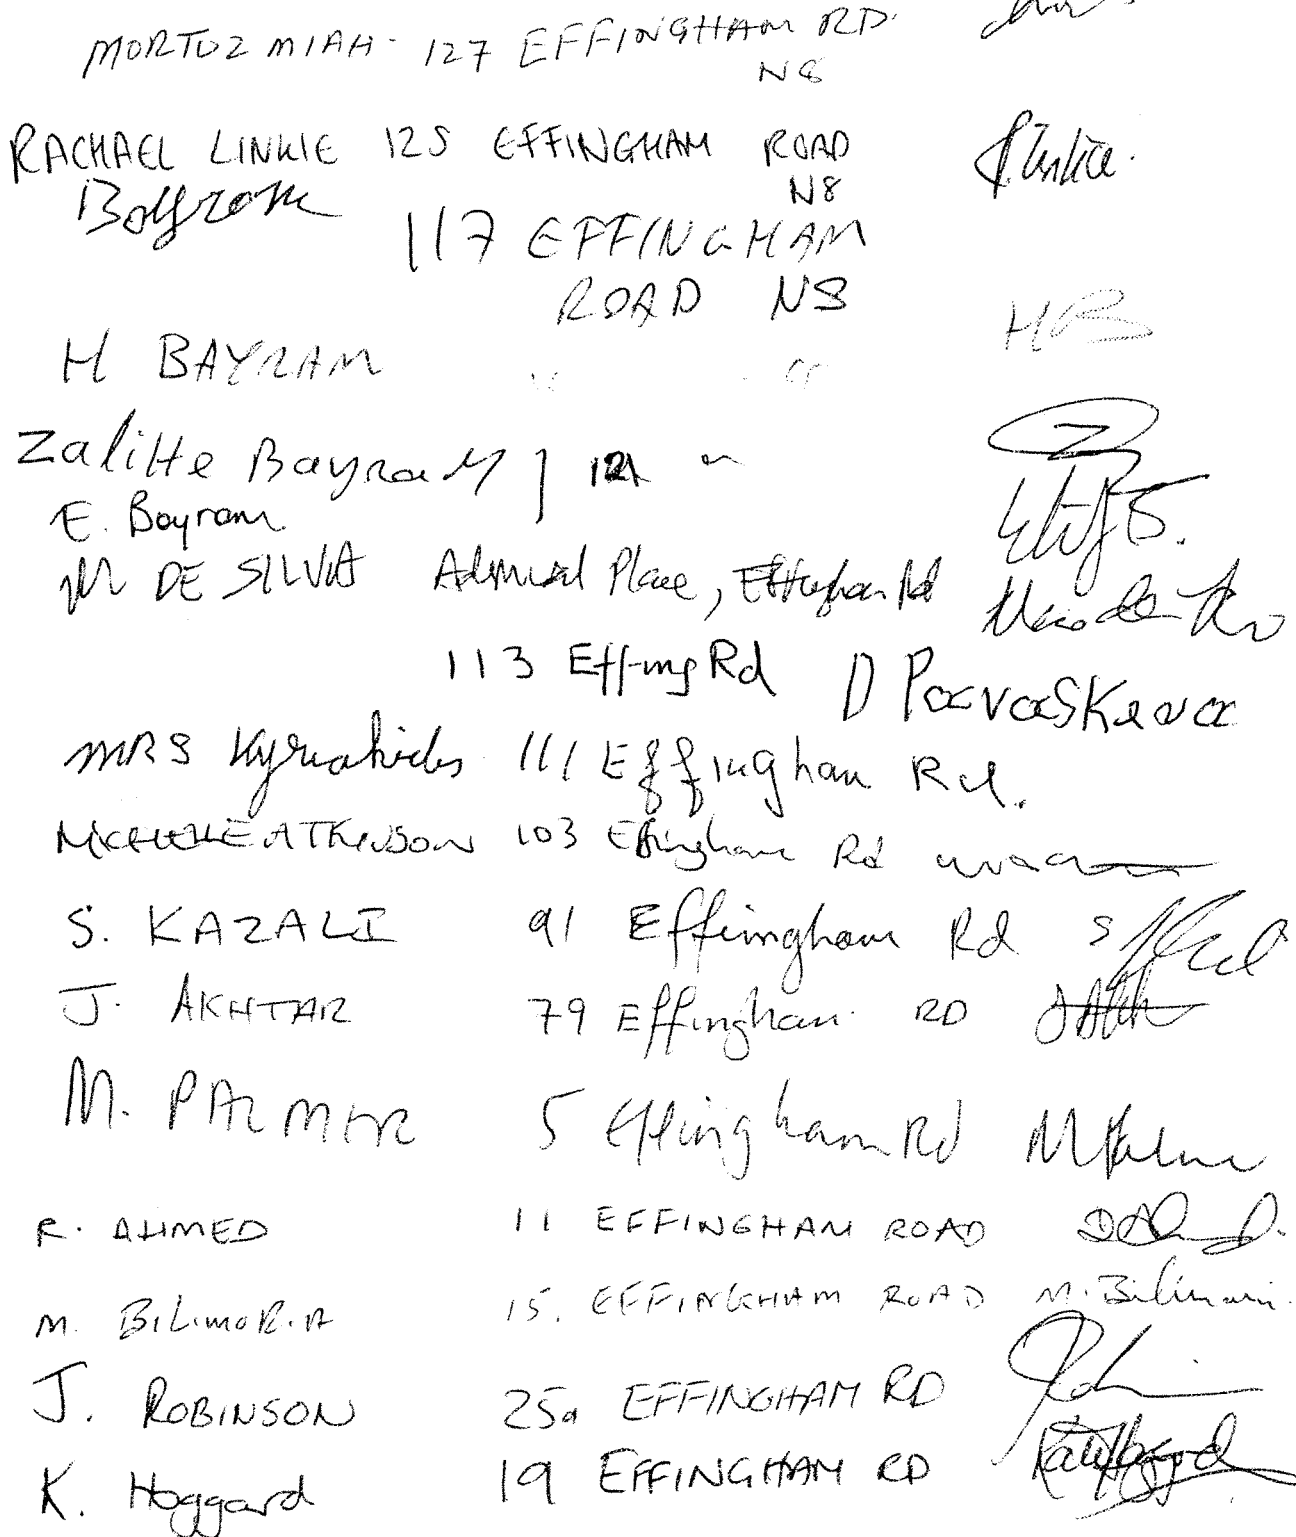 MORTUZ MIAH - 127 EFFINGHAM RD.
N8
RACHAEL LINKIE 125 EFFINGHAM ROAD
N8
117 EFFINGHAM
ROAD N8
H BAYRAM HB
Zalihe Bayram } 121 "
E. Bayram
M DE SILVA Admiral Place, Effingham Rd
113 Effing Rd D Paravaskeva
MRS Kyriakides 111 Effingham Rd.
MICHELLE ATKINSON 103 Effingham Rd
S. KAZALI 91 Effingham Rd
J. AKHTAR 79 Effingham RD
M. PALMER 5 Effingham Rd M Palmer
R. AHMED 11 EFFINGHAM ROAD
M. BILIMORIA 15. EFFINGHAM ROAD M. Bilimoria.
J. ROBINSON 25a EFFINGHAM RD
K. Hoggard 19 EFFINGHAM RD